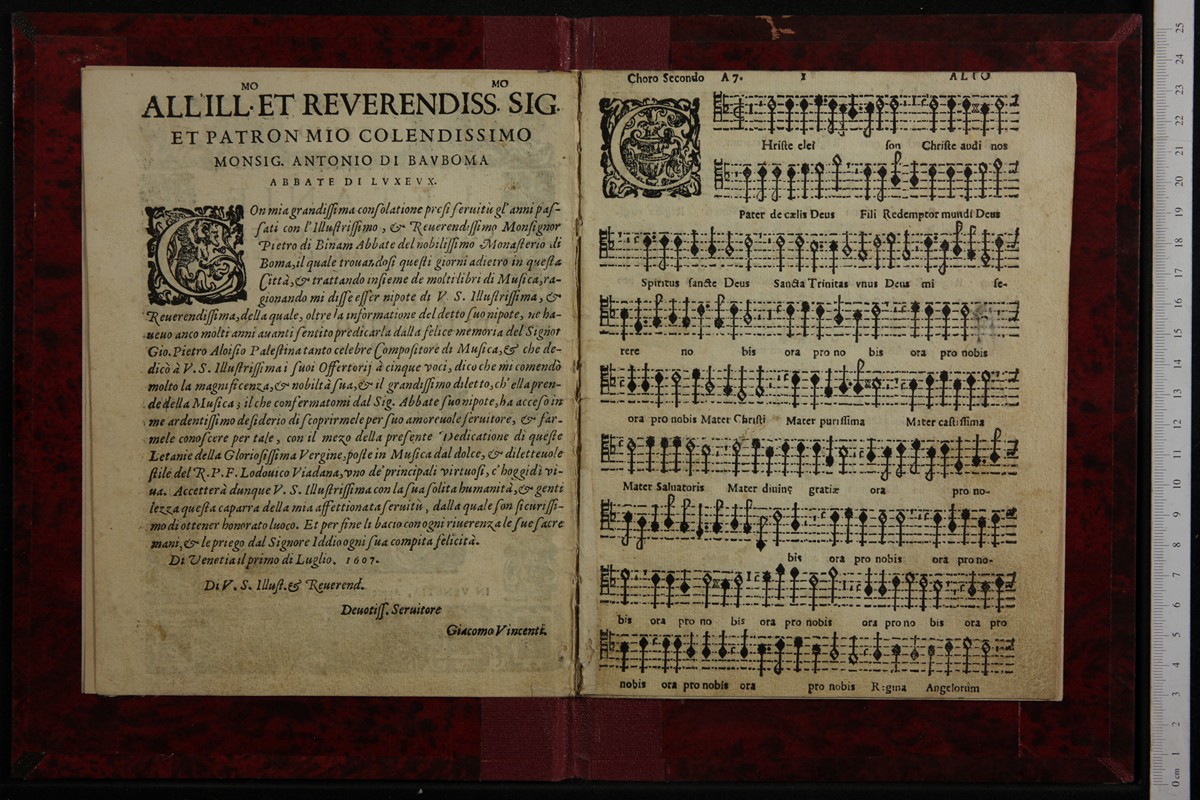 ALL'ILL.MO ET REVERENDISS.MO SIG.
ET PATRON MIO COLENDISSIMO
MONSIG. ANTONIO DI BAVBOMA
ABBATE DI LVXEVX.
COn mia grandissima consolatione presi seruitù gl'anni pas-
sati con l'Illustrissimo, & Reuerendissimo Monsignor
Pietro di Binam Abbate del nobilissimo Monasterio di
Boma, il quale trouandosi questi giorni adietro in questa
Città, & trattando insieme de molti libri di Musica, ra-
gionando mi disse esser nipote di V. S. Illustrissima, &
Reuerendissima, della quale, oltre la informatione del detto suo nipote, ne ha-
ueuo anco molti anni auanti sentito predicarla dalla felice memoria del Signor
Gio. Pietro Aloisio Palestina tanto celebre Compositore di Musica, & che de-
dicò à V. S. Illustrissima i suoi Offertorij à cinque voci, dico che mi comendò
molto la magnificenza, & nobiltà sua, & il grandissimo diletto, ch'ella pren-
de della Musica; il che confermatomi dal Sig. Abbate suo nipote, ha acceso in
me ardentissimo desiderio di scoprirmele per suo amoreuole seruitore, & far-
mele conoscere per tale, con il mezo della presente Dedicatione di queste
Letanie della Gloriosissima Vergine, poste in Musica dal dolce, & diletteuole
stile del R. P. F. Lodouico Viadana, vno de' principali virtuosi, c'hoggidì vi-
ua. Accetterà dunque V. S. Illustrissima con la sua solita humanità, & genti
lezza questa caparra della mia affettionata seruitù, dalla quale son sicurissi-
mo di ottener honorato luoco. Et per fine li bacio con ogni riuerenza le sue sacre
mani, & le priego dal Signore Iddio ogni sua compita felicità.
Di Venetia il primo di Luglio. 1607.
Di V. S. Illust. & Reuerend.
Deuotiss. Seruitore
Giacomo Vincenti.
Choro Secondo A 7. 1 ALTO
CHriste elei son Christe audi nos
Pater de cælis Deus Fili Redemptor mundi Deus
Spiritus sancte Deus Sancta Trinitas vnus Deus mi se-
rere no bis ora pro no bis ora pro nobis
ora pro nobis Mater Christi Mater purissima Mater castissima
Mater Saluatoris Mater diuinę gratiæ ora pro no-
bis ora pro nobis ora pro no-
bis ora pro no bis ora pro nobis ora pro no bis ora pro
nobis ora pro nobis ora pro nobis Regina Angelorum
25
24
23
22
21
20
19
18
17
16
15
14
13
12
11
10
9
8
7
6
5
4
3
2
1
0 cm